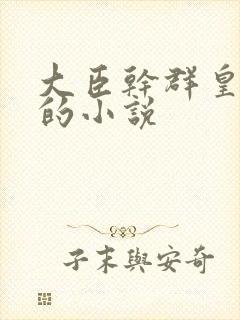 大臣幹群皇
的小說
子末與安奇